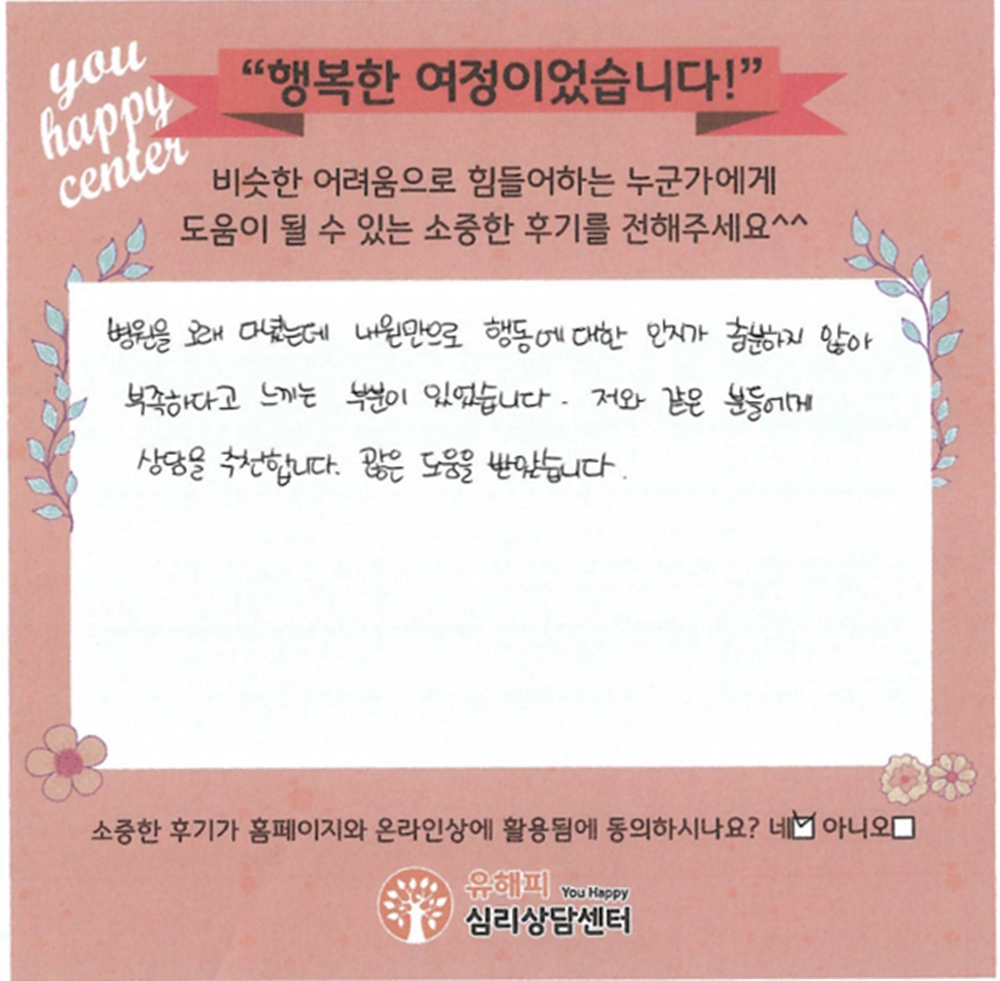 you
happy
center
“행복한 여정이었습니다!”
비슷한 어려움으로 힘들어하는 누군가에게
도움이 될 수 있는 소중한 후기를 전해주세요^^
병원을 오래 다녔는데 내원만으로 행동에 대한 인지가 충분하지 않아
부족하다고 느끼는 부분이 있었습니다. 저와 같은 분들에게
상담을 추천합니다. 많은 도움을 받았습니다.
소중한 후기가 홈페이지와 온라인상에 활용됨에 동의하시나요? 네☑ 아니오☐
유해피 You Happy
심리상담센터